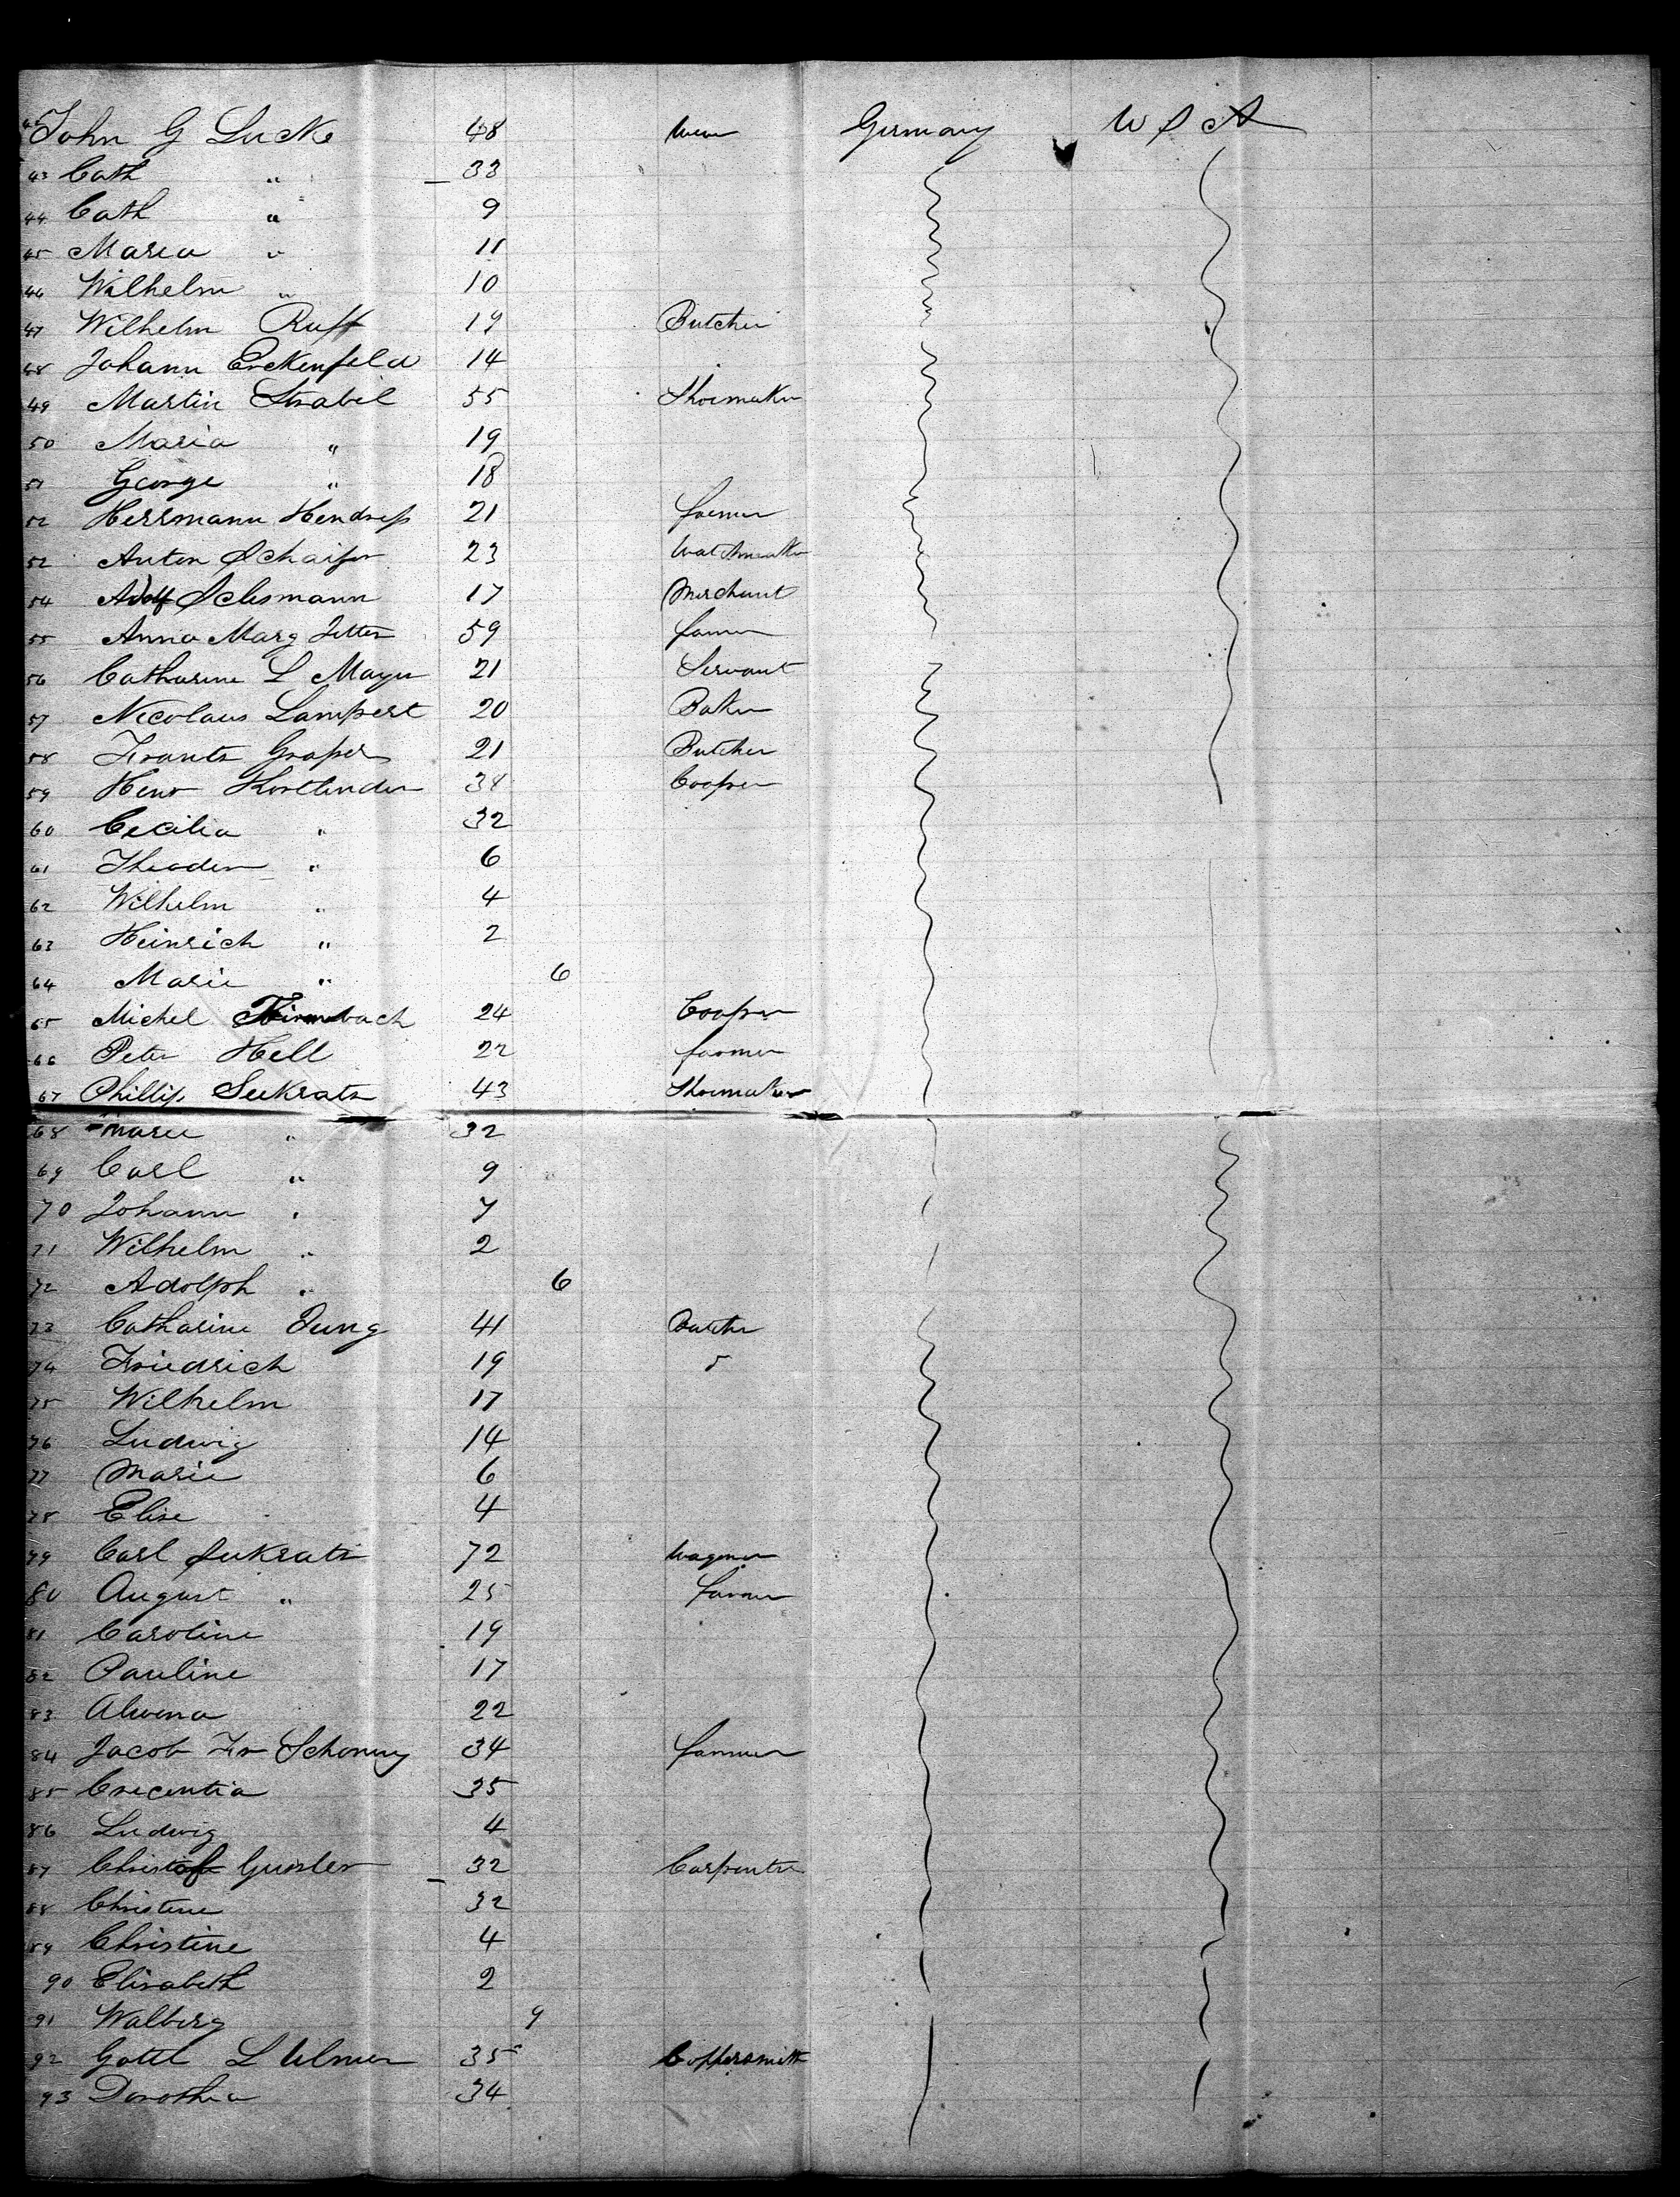 42 John G Lucke 48 Germany U S A
43 Cath " 33
44 Cath " 9
45 Maria " 11
46 Wilhelm " 10
47 Wilhelm Ruff 19 Butcher
48 Johann Eckenfeld 14
49 Martin Strabel 55 Shoemaker
50 Maria " 19
51 George " 18
52 Herrmann 21 farmer
52 Anton Schaifer 23 Watchmaker
54 Adolf 17 Merchant
55 Anna Marg Jetter 59 farmer
56 Catharine L Mayer 21 Servant
57 Nicolaus Lampert 20 Baker
58 Frantz Graper 21 Butcher
59 34 Cooper
60 Cecilia " 32
61 Theodor " 6
62 Wilhelm " 4
63 Heinrich " 2
64 Marie " 6
65 Michel 24 Cooper
66 Peter Hell 22 farmer
67 Phillip Seekratz 43 Shoemaker
68 Marie " 32
69 Carl " 9
70 Johann " 7
71 Wilhelm " 2
72 Adolph " 6
73 Catharine Jung 41 Butcher
74 Friedrich 19
75 Wilhelm 17
76 Ludwig 14
77 Marie 6
78 Elise 4
79 Carl Seekratz 72 Wagoner
80 August " 25 farmer
81 Caroline 19
82 Pauline 17
83 Alwena 22
84 Jacob Fr 34 farmer
85 Crecentia 35
86 Ludwig 4
87 Christof 32 Carpenter
88 Christine 32
89 Christine 4
90 Elisabeth 2
91 Walberg 9
92 Gottl L Ulmer 35 Coppersmith
93 Dorothea 34